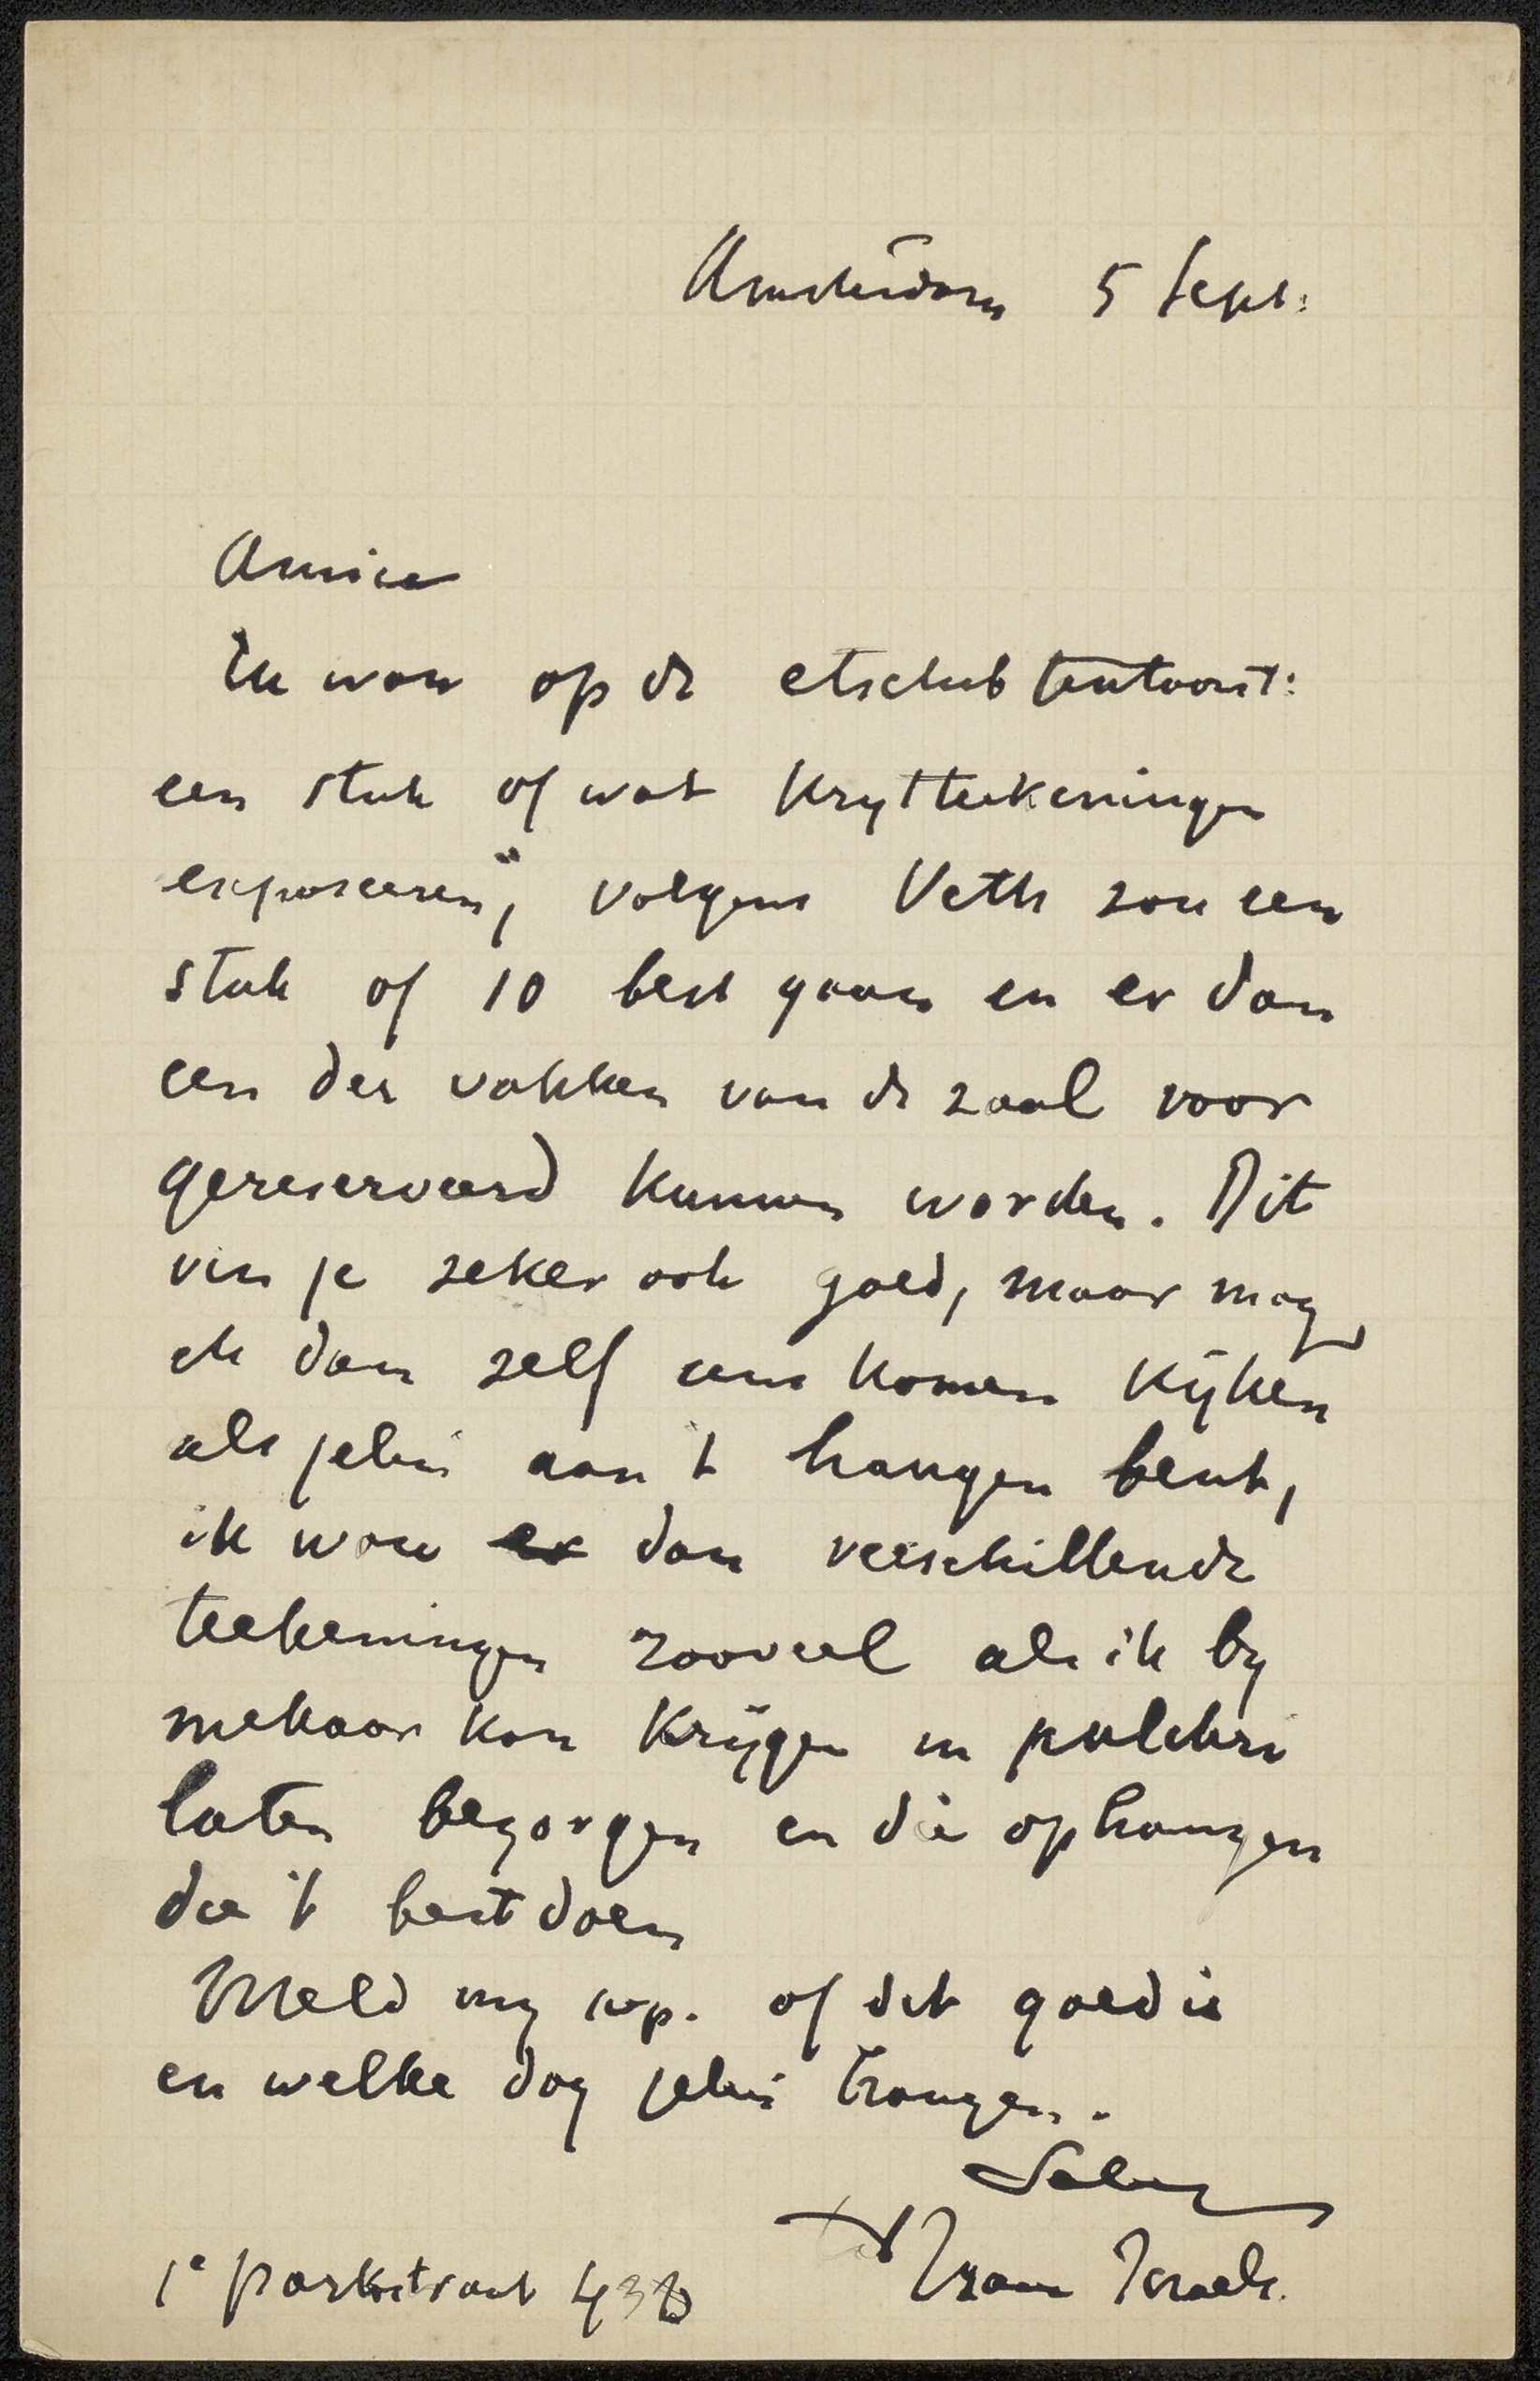 Amsterdam 5 Sept:
Amice
Ik wou op de etsclub tentoonst:
een stuk of wat Krytteekeningen
exposeeren, volgens Veth zou een
stuk of 10 best gaan en er dan
een der vakken van de zaal voor
gereserveerd kunnen worden. Dit
vin je zeker ook goed, maar mag
ik dan zelf eens komen Kijken
als jelui aan 't hangen bent,
ik wou er dan verschillende
teekeningen zooveel als ik by
mekaar kon Krijgen in pulchri
laten bezorgen en die ophangen
die 't best doen
Meld my svp. of dit goed is
en welke dag jelui hangen.
Salug
Isaac Israels.
1e parkstraat 438